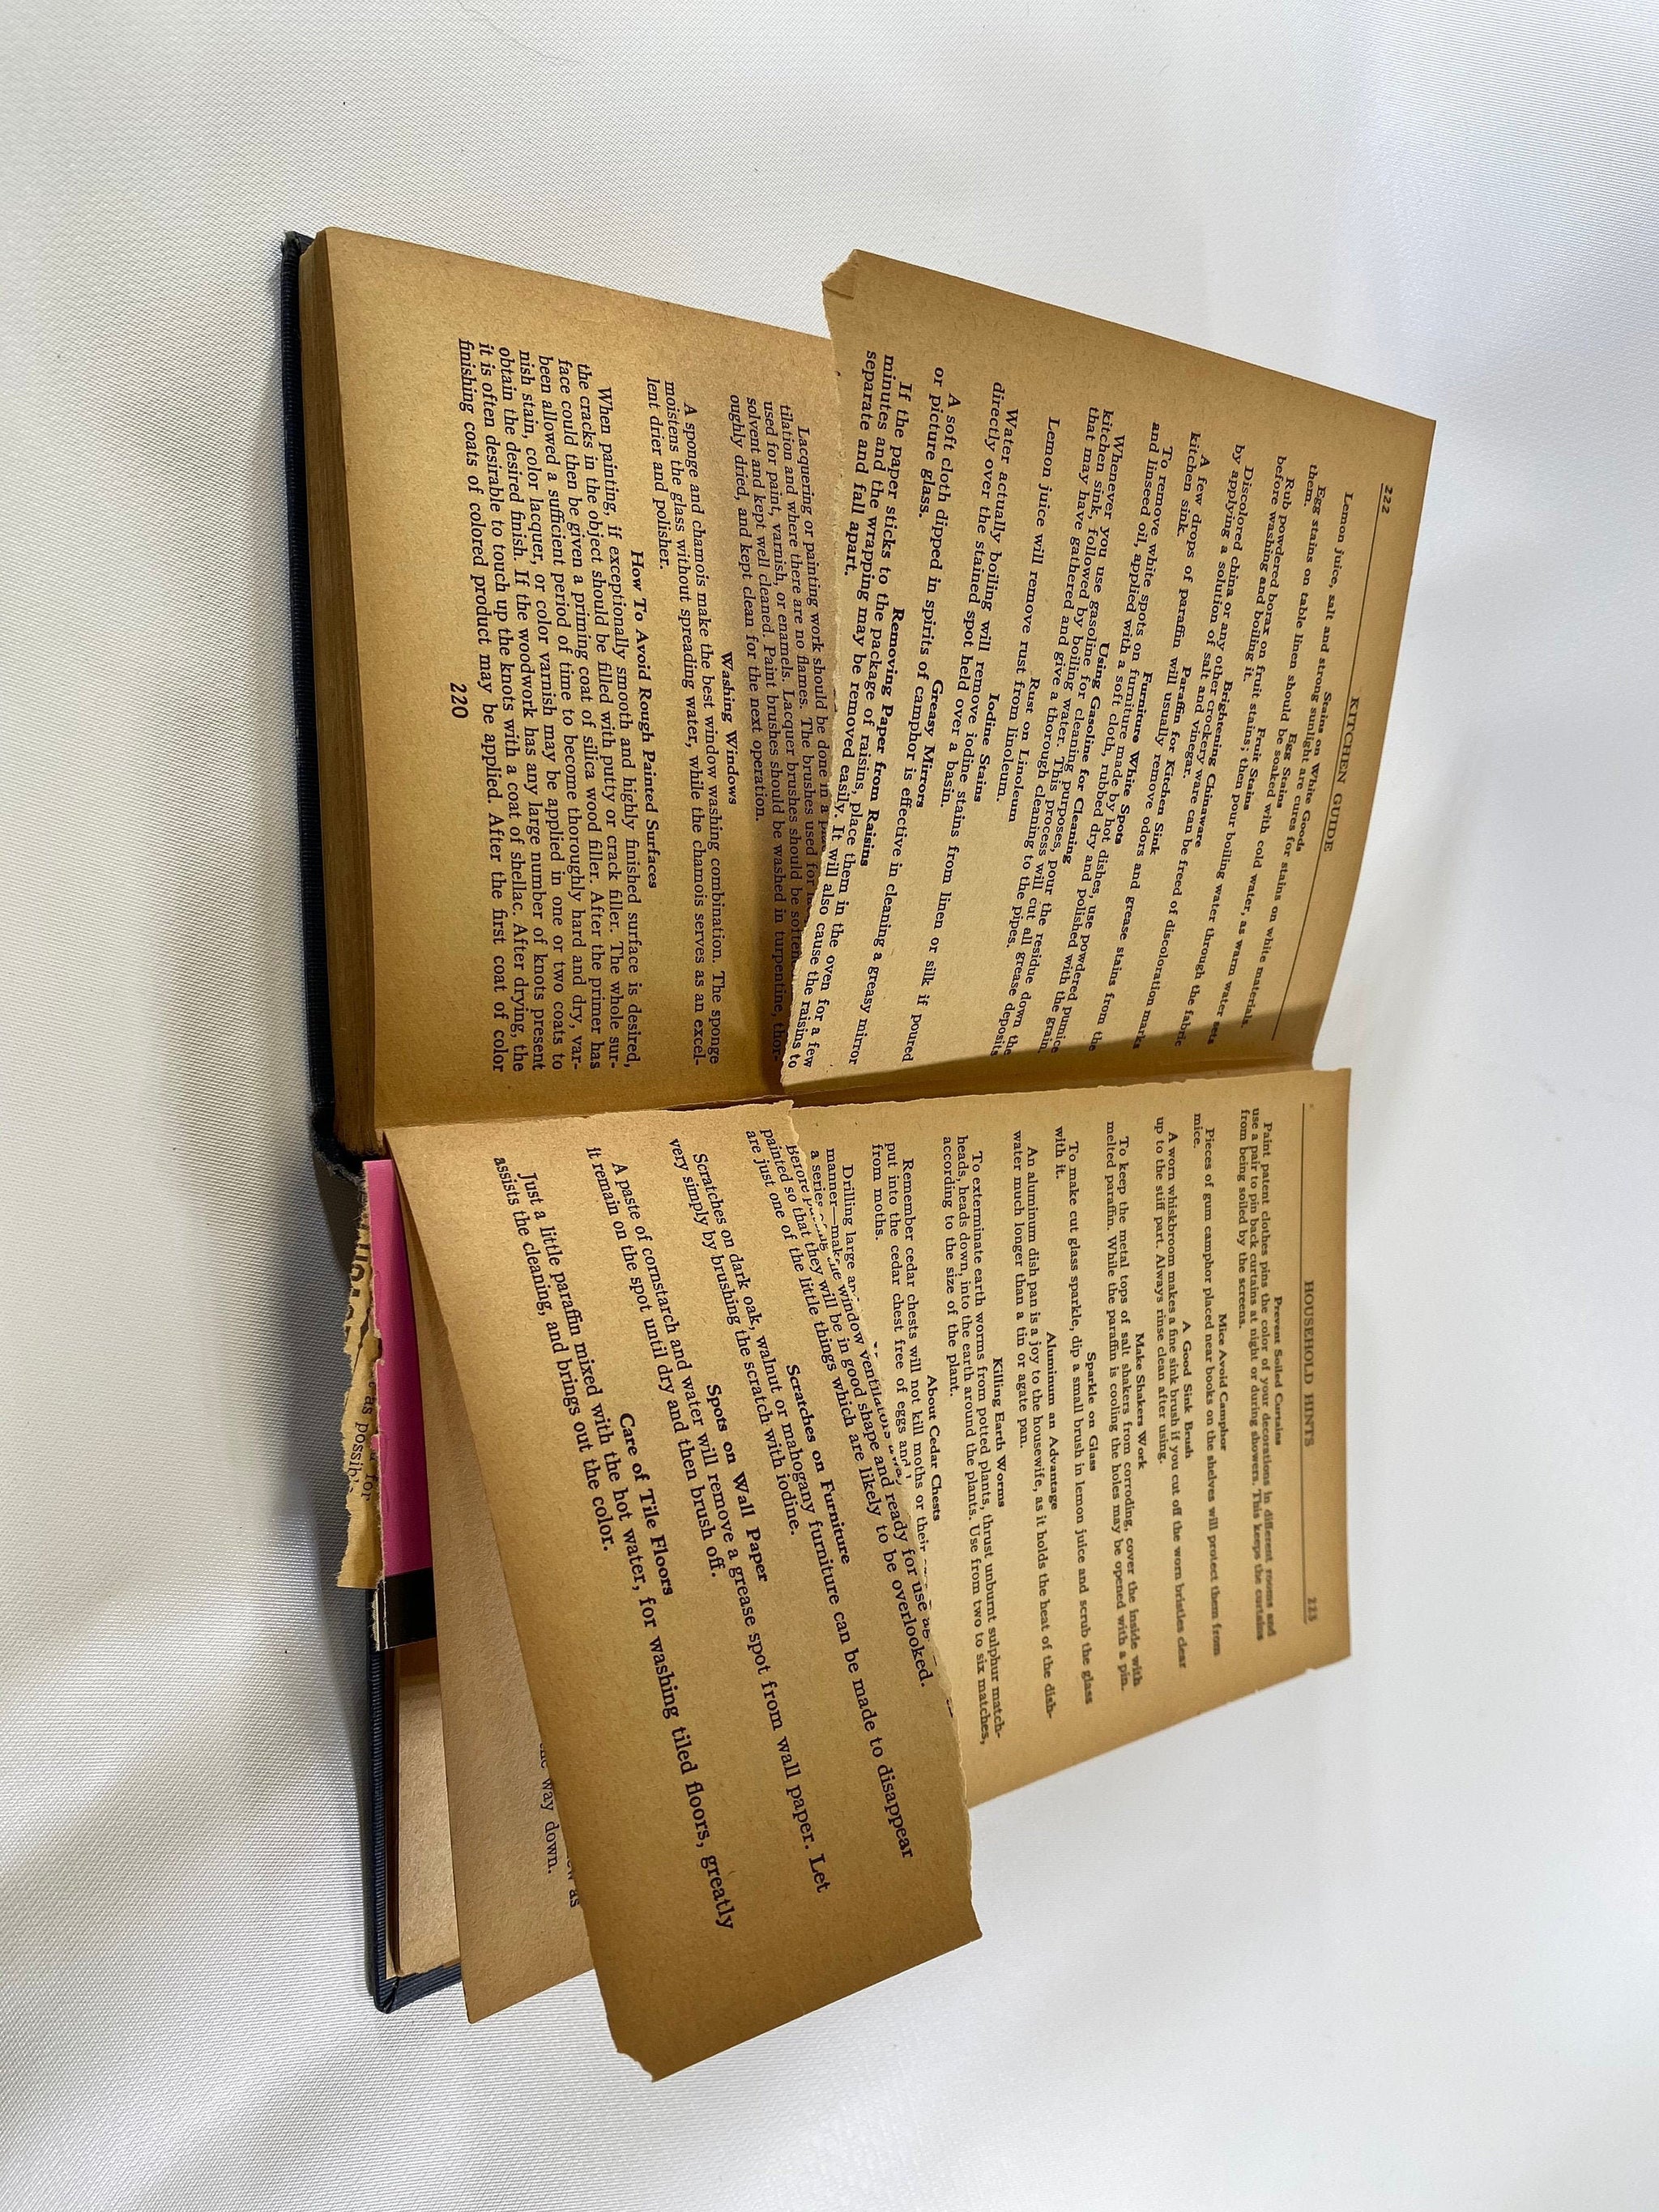 222 KITCHEN GUIDE
Stains on White Goods
Lemon juice, salt and strong sunlight are cures for stains on white materials.
Egg Stains
Egg stains on table linen should be soaked with cold water, as warm water sets
them.
Fruit Stains
Rub powdered borax on fruit stains; then pour boiling water through the fabric
before washing and boiling it.
Brightening Chinaware
Discolored china or any other crockery ware can be freed of discoloration marks
by applying a solution of salt and vinegar.
Paraffin for Kitchen Sink
A few drops of paraffin will usually remove odors and grease stains from the
kitchen sink.
Furniture White Spots
To remove white spots on furniture made by hot dishes, use powdered pumice
and linseed oil, applied with a soft cloth, rubbed dry and polished with the grain.
Using Gasoline for Cleaning
Whenever you use gasoline for cleaning purposes, pour the residue down the
kitchen sink, followed by boiling water. This process will cut all grease deposits
that may have gathered and give a thorough cleaning to the pipes.
Rust on Linoleum
Lemon juice will remove rust from linoleum.
Iodine Stains
Water actually boiling will remove iodine stains from linen or silk if poured
directly over the stained spot held over a basin.
Greasy Mirrors
A soft cloth dipped in spirits of camphor is effective in cleaning a greasy mirror
or picture glass.
Removing Paper from Raisins
If the paper sticks to the package of raisins, place them in the oven for a few
minutes and the wrapping may be removed easily. It will also cause the raisins to
separate and fall apart.
Lacquering or painting work should be done in a
tilation and where there are no flames. The brushes used for
used for paint, varnish, or enamels. Lacquer brushes should be
solvent and kept well cleaned. Paint brushes should be washed in turpentine, thor-
oughly dried, and kept clean for the next operation.
Washing Windows
A sponge and chamois make the best window washing combination. The sponge
moistens the glass without spreading water, while the chamois serves as an excel-
lent drier and polisher.
How To Avoid Rough Painted Surfaces
When painting, if exceptionally smooth and highly finished surface is desired,
the cracks in the object should be filled with putty or crack filler. The whole sur-
face could then be given a priming coat of silica wood filler. After the primer has
been allowed a sufficient period of time to become thoroughly hard and dry, var-
nish stain, color lacquer, or color varnish may be applied in one or two coats to
obtain the desired finish. If the woodwork has any large number of knots present
it is often desirable to touch up the knots with a coat of shellac. After drying, the
finishing coats of colored product may be applied. After the first coat of color
220
HOUSEHOLD HINTS 223
Prevent Soiled Curtains
Paint patent clothes pins the color of your decorations in different rooms and
use a pair to pin back curtains at night or during showers. This keeps the curtains
from being soiled by the screens.
Mice Avoid Camphor
Pieces of gum camphor placed near books on the shelves will protect them from
mice.
A Good Sink Brush
A worn whiskbroom makes a fine sink brush if you cut off the worn bristles clear
up to the stiff part. Always rinse clean after using.
Make Shakers Work
To keep the metal tops of salt shakers from corroding, cover the inside with
melted paraffin. While the paraffin is cooling the holes may be opened with a pin.
Sparkle on Glass
To make cut glass sparkle, dip a small brush in lemon juice and scrub the glass
with it.
Aluminum an Advantage
An aluminum dish pan is a joy to the housewife, as it holds the heat of the dish-
water much longer than a tin or agate pan.
Killing Earth Worms
To exterminate earth worms from potted plants, thrust unburnt sulphur match-
heads, heads down, into the earth around the plants. Use from two to six matches,
according to the size of the plant.
About Cedar Chests
Remember cedar chests will not kill moths or their
put into the cedar chest free of eggs and
from moths.
Drilling large
manner—make
a series
window ventilators
painted so that they will be in good shape and ready for use
are just one of the little things which are likely to be overlooked.
Scratches on Furniture
Scratches on dark oak, walnut or mahogany furniture can be made to disappear
very simply by brushing the scratch with iodine.
Spots on Wall Paper
A paste of cornstarch and water will remove a grease spot from wall paper. Let
it remain on the spot until dry and then brush off.
Care of Tile Floors
Just a little paraffin mixed with the hot water, for washing tiled floors, greatly
assists the cleaning, and brings out the color.
as
way down.
for
as possib